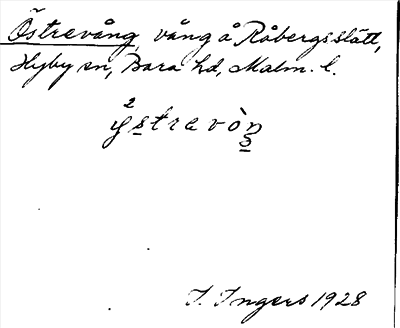 Östrevång, vång å Råbergsslätt,
Hyby sn, Bara hd, Malm. l.
²ystrevòŋ
I. Ingers 1928